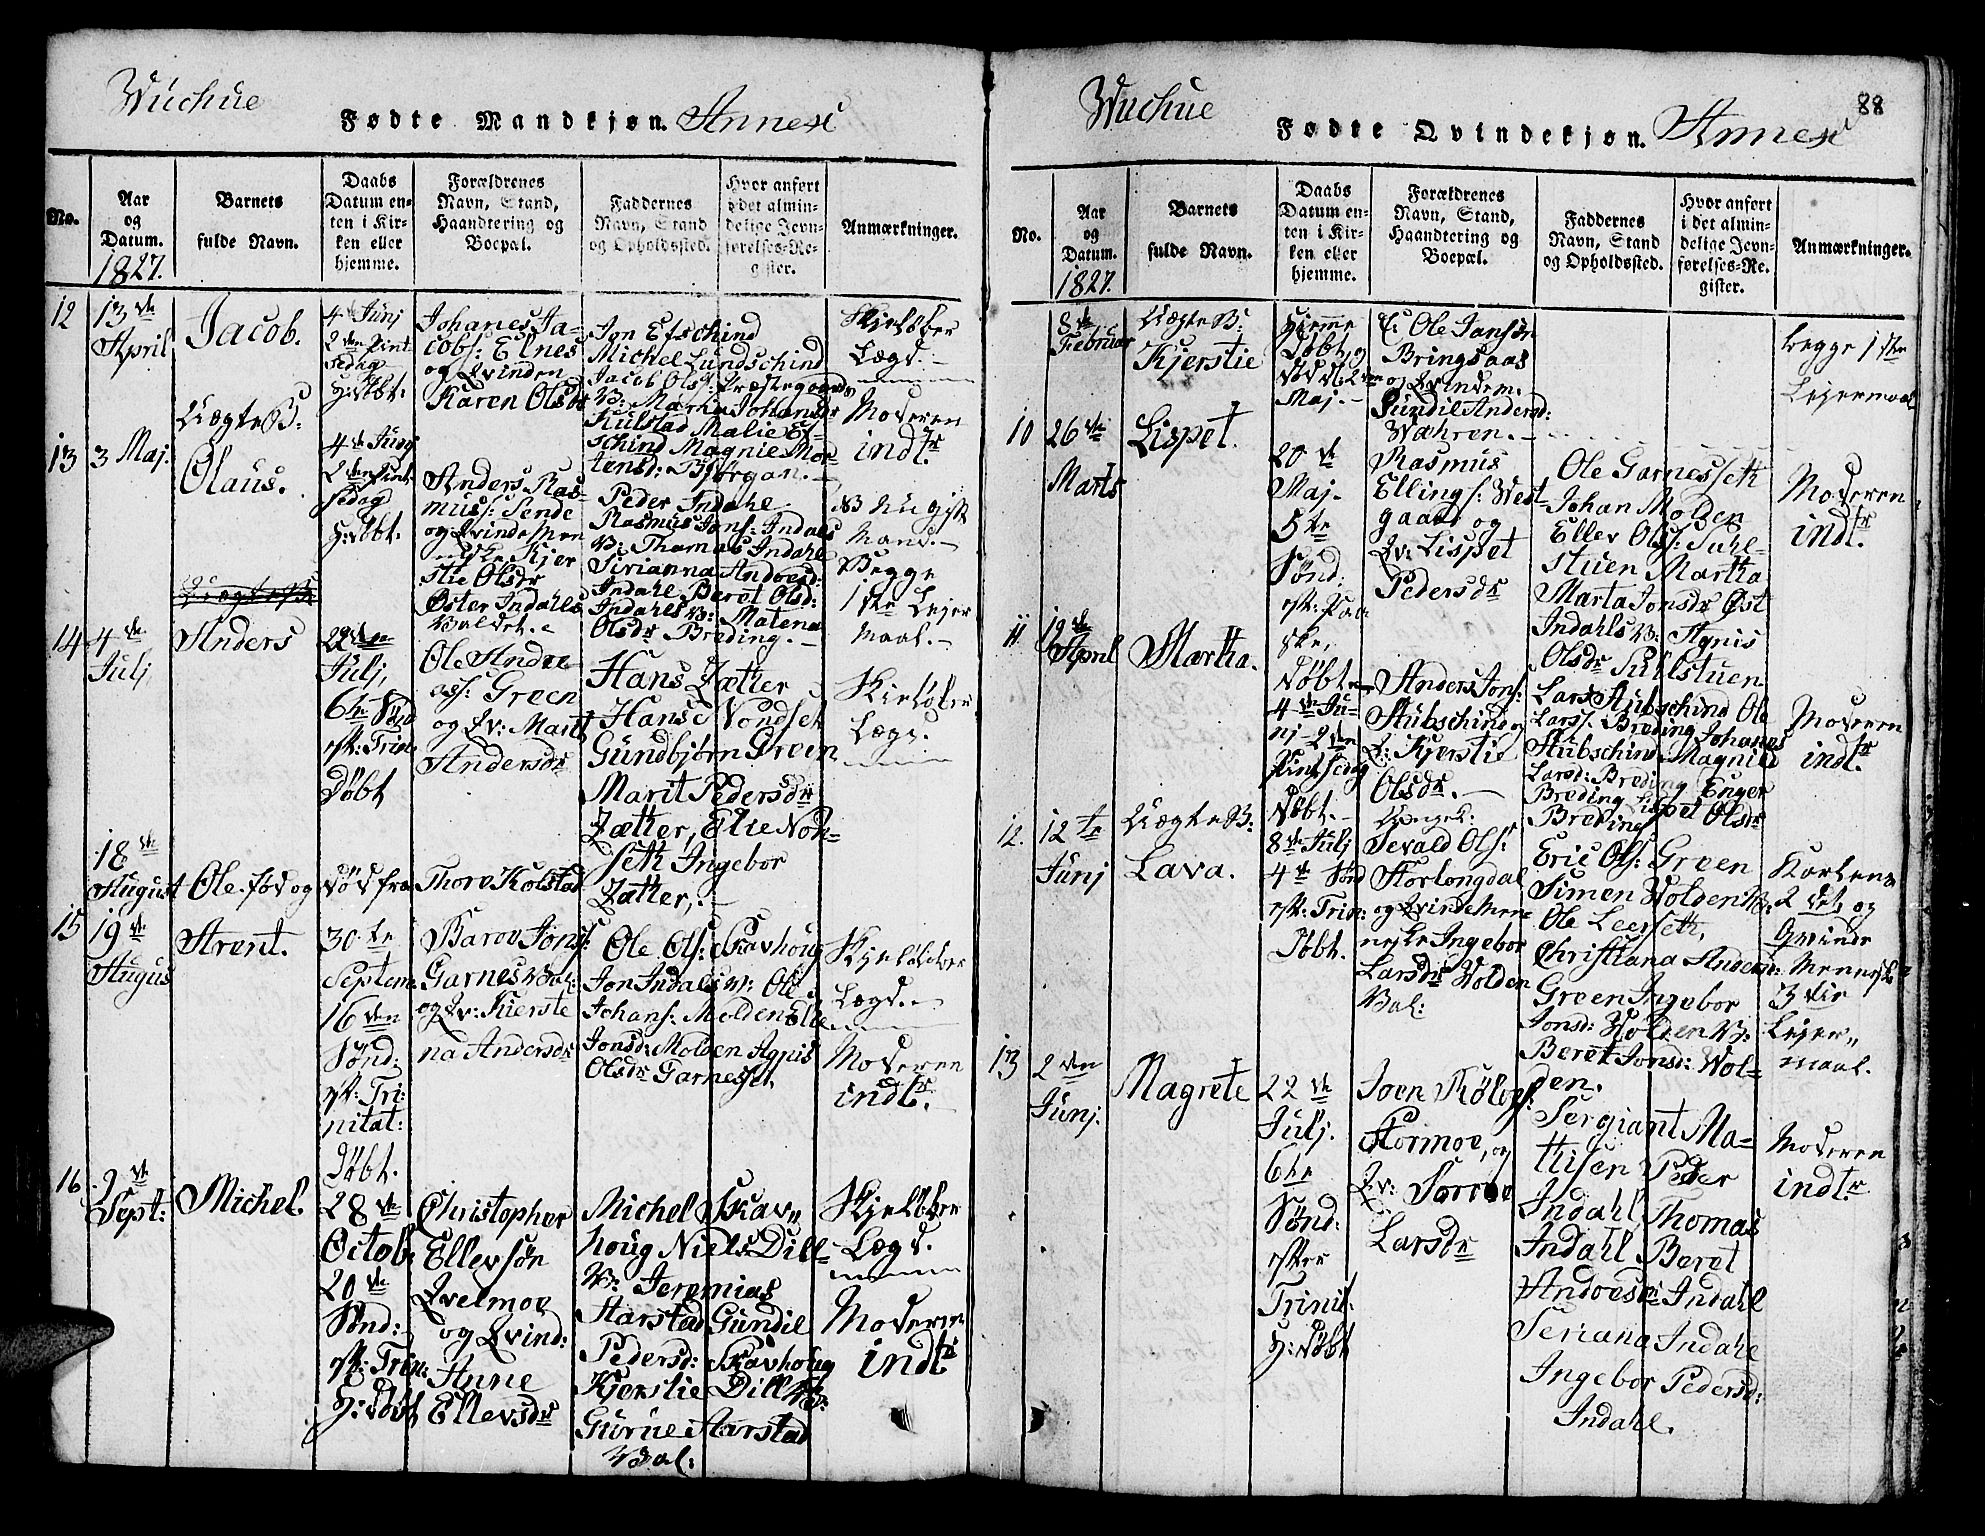 Wuchue
Fødte Mandkjøn. Annex
No.
Aar
og
Datum.
1827.
Barnets
fulde Navn.
Daabs
Datum en-
ten i Kir-
ken eller
hjemme.
Forældrenes
Navn, Stand,
Haandtering og
Boepæl.
Faddernes
Navn, Stand
og Opholdssted.
Hvor anført
i det almin-
delige Jevn-
førelses-Re-
gister.
Anmærkninger.
12
13de
April
Jacob.
4de Junj
2den Pint-
sedag
H: Døbt:
Johanes Ja-
cobs: Elnes
og Qvinden
Karen Olsdr
Jon Efschind
Michel Lundschind
Jacob Ols: Præstegaards
V: Marha Johansdr
Kulstad Malie Ef-
schind Magnie Mor-
tensd: Bjørgan.
Skjeløber
Lægd.
Moderen
indtr.
13
3 Maj.
Uægte B:
Olaus.
4de Junj
2den Pint
sedag
H: Døbt.
Anders Ras-
mus: Sende
og Qvinde Men
neske Kjer
stie Olsdr
Øster Indahls
Valdet.
Peder Indahl
Rasmus Jons: Indals
V: Thomas Indahl
Sirianna Andoesd:
Indahl Beret Olsd:
Indahls V: Matena
Olsdr Breding.
Nu gift
Mand.
Begge
1ste Lejer
Maal.
Uægte B
14
4de
Julj
Anders
22den
Julj,
6te Sønd
eft: Trin:
Døbt
Ole Andre
as: Green
og Qv: Marit
Andersdr
Hans Zætter
Hans Vondset
Gundbjørn Green
Marit Pedersdr
Zætter, Elie Von-
seth Ingebor
Zætter,
Skieløber
Lægd.
18de
August
Ole. fød og
død fra
Thore Kolstad
15
19de
Augus
Arent.
30te
Septem
16den
Sønd:
eft: Tri:
nitat:
Døbt.
Baroe Jons:
Garnes Val:
og Qv: Kierste
na Andersdr
Ole Ols: Skavhoug
Jon Indals V: Ole
Johans: Molden Elie
Jonsd: Molden Agnis
Olsdr Garnesset
Skjeløber
Lægd.
Moderen
indtr.
16
2de
Sept:
Michel.
28de
Octob
20de
Sønd:
eft: Trin:
H: Døbt
Christopher
Ellevsøn
Qvelmoe
og Qvind:
Anne
Ellevsdr
Michel Skav-
houg Niels Dill-
V: Jeremias
Aarstad Gundil
Pedersd: Skavhoug
Kjerstie Dill V:
Gurue Aarstad
Val:
Skjeløber
Lægd.
Moderen
indtr
Wuchue
Fødte Qvindekjøn. Annex
88
No.
Aar
og
Datum.
1827.
Barnets
fulde Navn.
Daabs
Datum en-
ten i Kir-
ken eller
hjemme.
Forældrenes
Navn, Stand,
Haandtering og
Boepæl.
Faddernes
Navn, Stand
og Opholdssted.
Hvor anført
i det almin-
delige Jevn-
førelses-Re-
gister.
Anmærkninger.
8de
Februar
Uægte B:
Kjerstie
Hjemme
Døbt, og
død d: 2den
Maj.
E: Ole Jansøn
Bringsaas
og Qvindem.
Sundil Andersd:
Wæhren.
begge 1ste
Lejermaal
10
26de
Marts
Lispet.
20de
Maj.
5te
Sønd:
eft: Paa
ske,
Døbt
Rasmus
Ellings: West-
gaard og
Qv: Lispet
Pedersdr
Ole Garnesseth
Johan Molden
Ellev Ols: Suhl-
stuen Martha
Marta Jonsdr Øst
Indahls V: Agnis
Olsdr Sullstuen
Moderen
indtr.
11
19de
April
Martha.
4de Ju-
nj 2den
Pintsedag
Døbt.
Anders Jons:
Stubschind og
Q: Kjerstie
Olsdr.
Lars Stubschind Ole
Lars: Breding Johanes
Stubschind Magnild
Larsd: Breding Enger
Breding Lispet Olsdr
Breding
Moderen
indtr.
12.
12te
Junj
Uægte B:
Lava.
8de Julj
4de Sønd
eft: Trin:
Døbt.
Ungek:
Sevald Ols:
Storlongdal
og Qvinde Men
neske Ingebor
Larsdr Volden
Val:
Eric Ols: Green
Simen Volden V:
Ole Leerseth,
Christiana Andersd:
Green Ingebor
Jonsd: Volden V:
Beret Jonsd: Vol-
den.
Karlens
2det og
Qvinde
Menneske
3die
Lejer-
maal.
13
2den
Junj.
Magrete
22de
Julj.
6te
Sønd:
efter
Trinit:
H: Døbt
Joen Kølvs:
Stormoe, og
Qv: Sørene
Larsdr
Sergiant Ma-
thisen Peder
Indahl Thomas
Indahl Beret
Andoesdr Indahl
Seriana Indahl
Ingebor Pedersd:
Indahl.
Moderen
indtr.